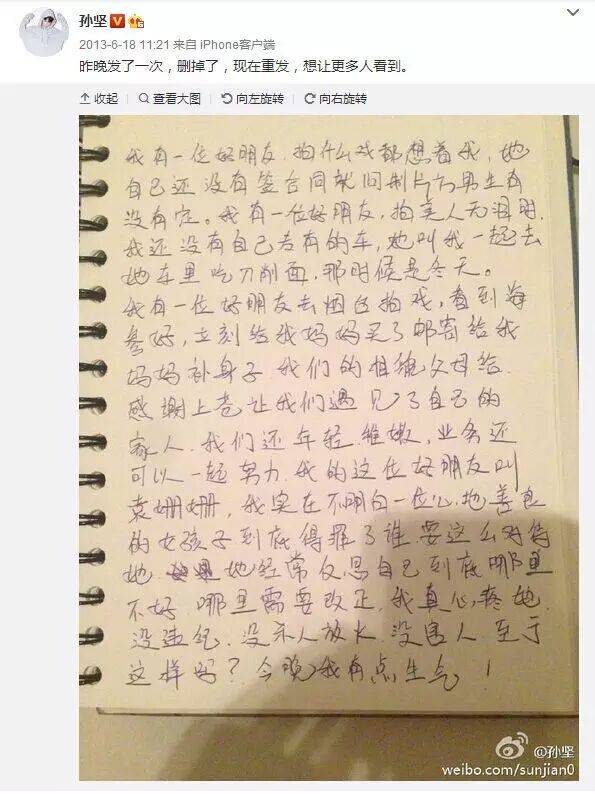 孙坚
2013-6-18 11:21 来自 iPhone客户端
昨晚发了一次，删掉了，现在重发，想让更多人看到。
收起 查看大图 向左旋转 向右旋转
我有一位好朋友，拍什么戏都想着我，她
自己还没有签合同就问制片方男生有
没有定。我有一位好朋友，拍美人无泪时，
我还没有自己专有的车，她叫我一起去
她车里吃刀削面，那时候是冬天。
我有一位好朋友去烟台拍戏，看到海
参好，立刻给我妈妈买了邮寄给我
妈妈补身子 我们的相貌父母给，
感谢上苍让我们遇见了自己的
家人，我们还年轻稚嫩，业务还
可以一起努力，我的这位好朋友叫
袁姗姗，我实在不明白一位心地善良
的女孩子到底得罪了谁，要这么对待
她 她经常反思自己到底哪里
不好 哪里需要改正，我真心疼她，
没违纪，没杀人放火 没害人 至于
这样吗？今晚我有点生气！
@孙坚
weibo.com/sunjian0